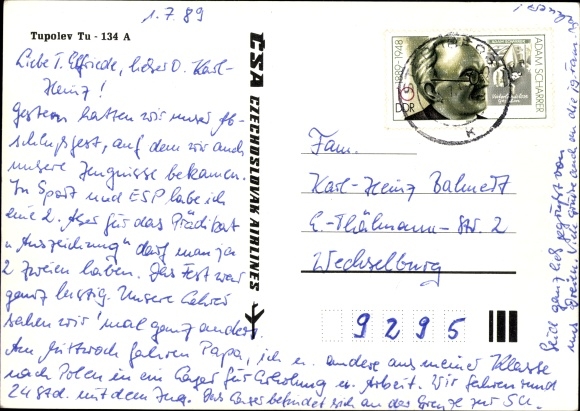 1.7.89
Tupolev Tu - 134 A
Liebe T. Elfriede, lieber O. Karl-
Heinz!
Gestern hatten wir unser Ab-
schlußfest, auf dem wir auch
unsere Zeugnisse bekamen.
In Sport und ESP habe ich
eine 2. Aber für das Prädikat
"Auszeichnung" darf man ja
2 Zweien haben. Das Fest war
ganz lustig. Unsere Lehrer
sahen wir 'mal ganz anders.
Am Mittwoch fahren Papa, ich u. andere aus meiner Klasse
nach Polen in ein Lager für Erholung u. Arbeit. Wir fahren rund
24 Std. mit dem Zug. Das Lager befindet sich an der Grenze zur SU.
Seid ganz lieb gegrüßt von
uns Dreien. Viele Grüße auch an die
ČSA CZECHOSLOVAK AIRLINES
1882-1948
ADAM SCHARRER
DDR
Fam.
Karl-Heinz Bahnert
E.-Thälmann-Str. 2
Wechselburg
9295